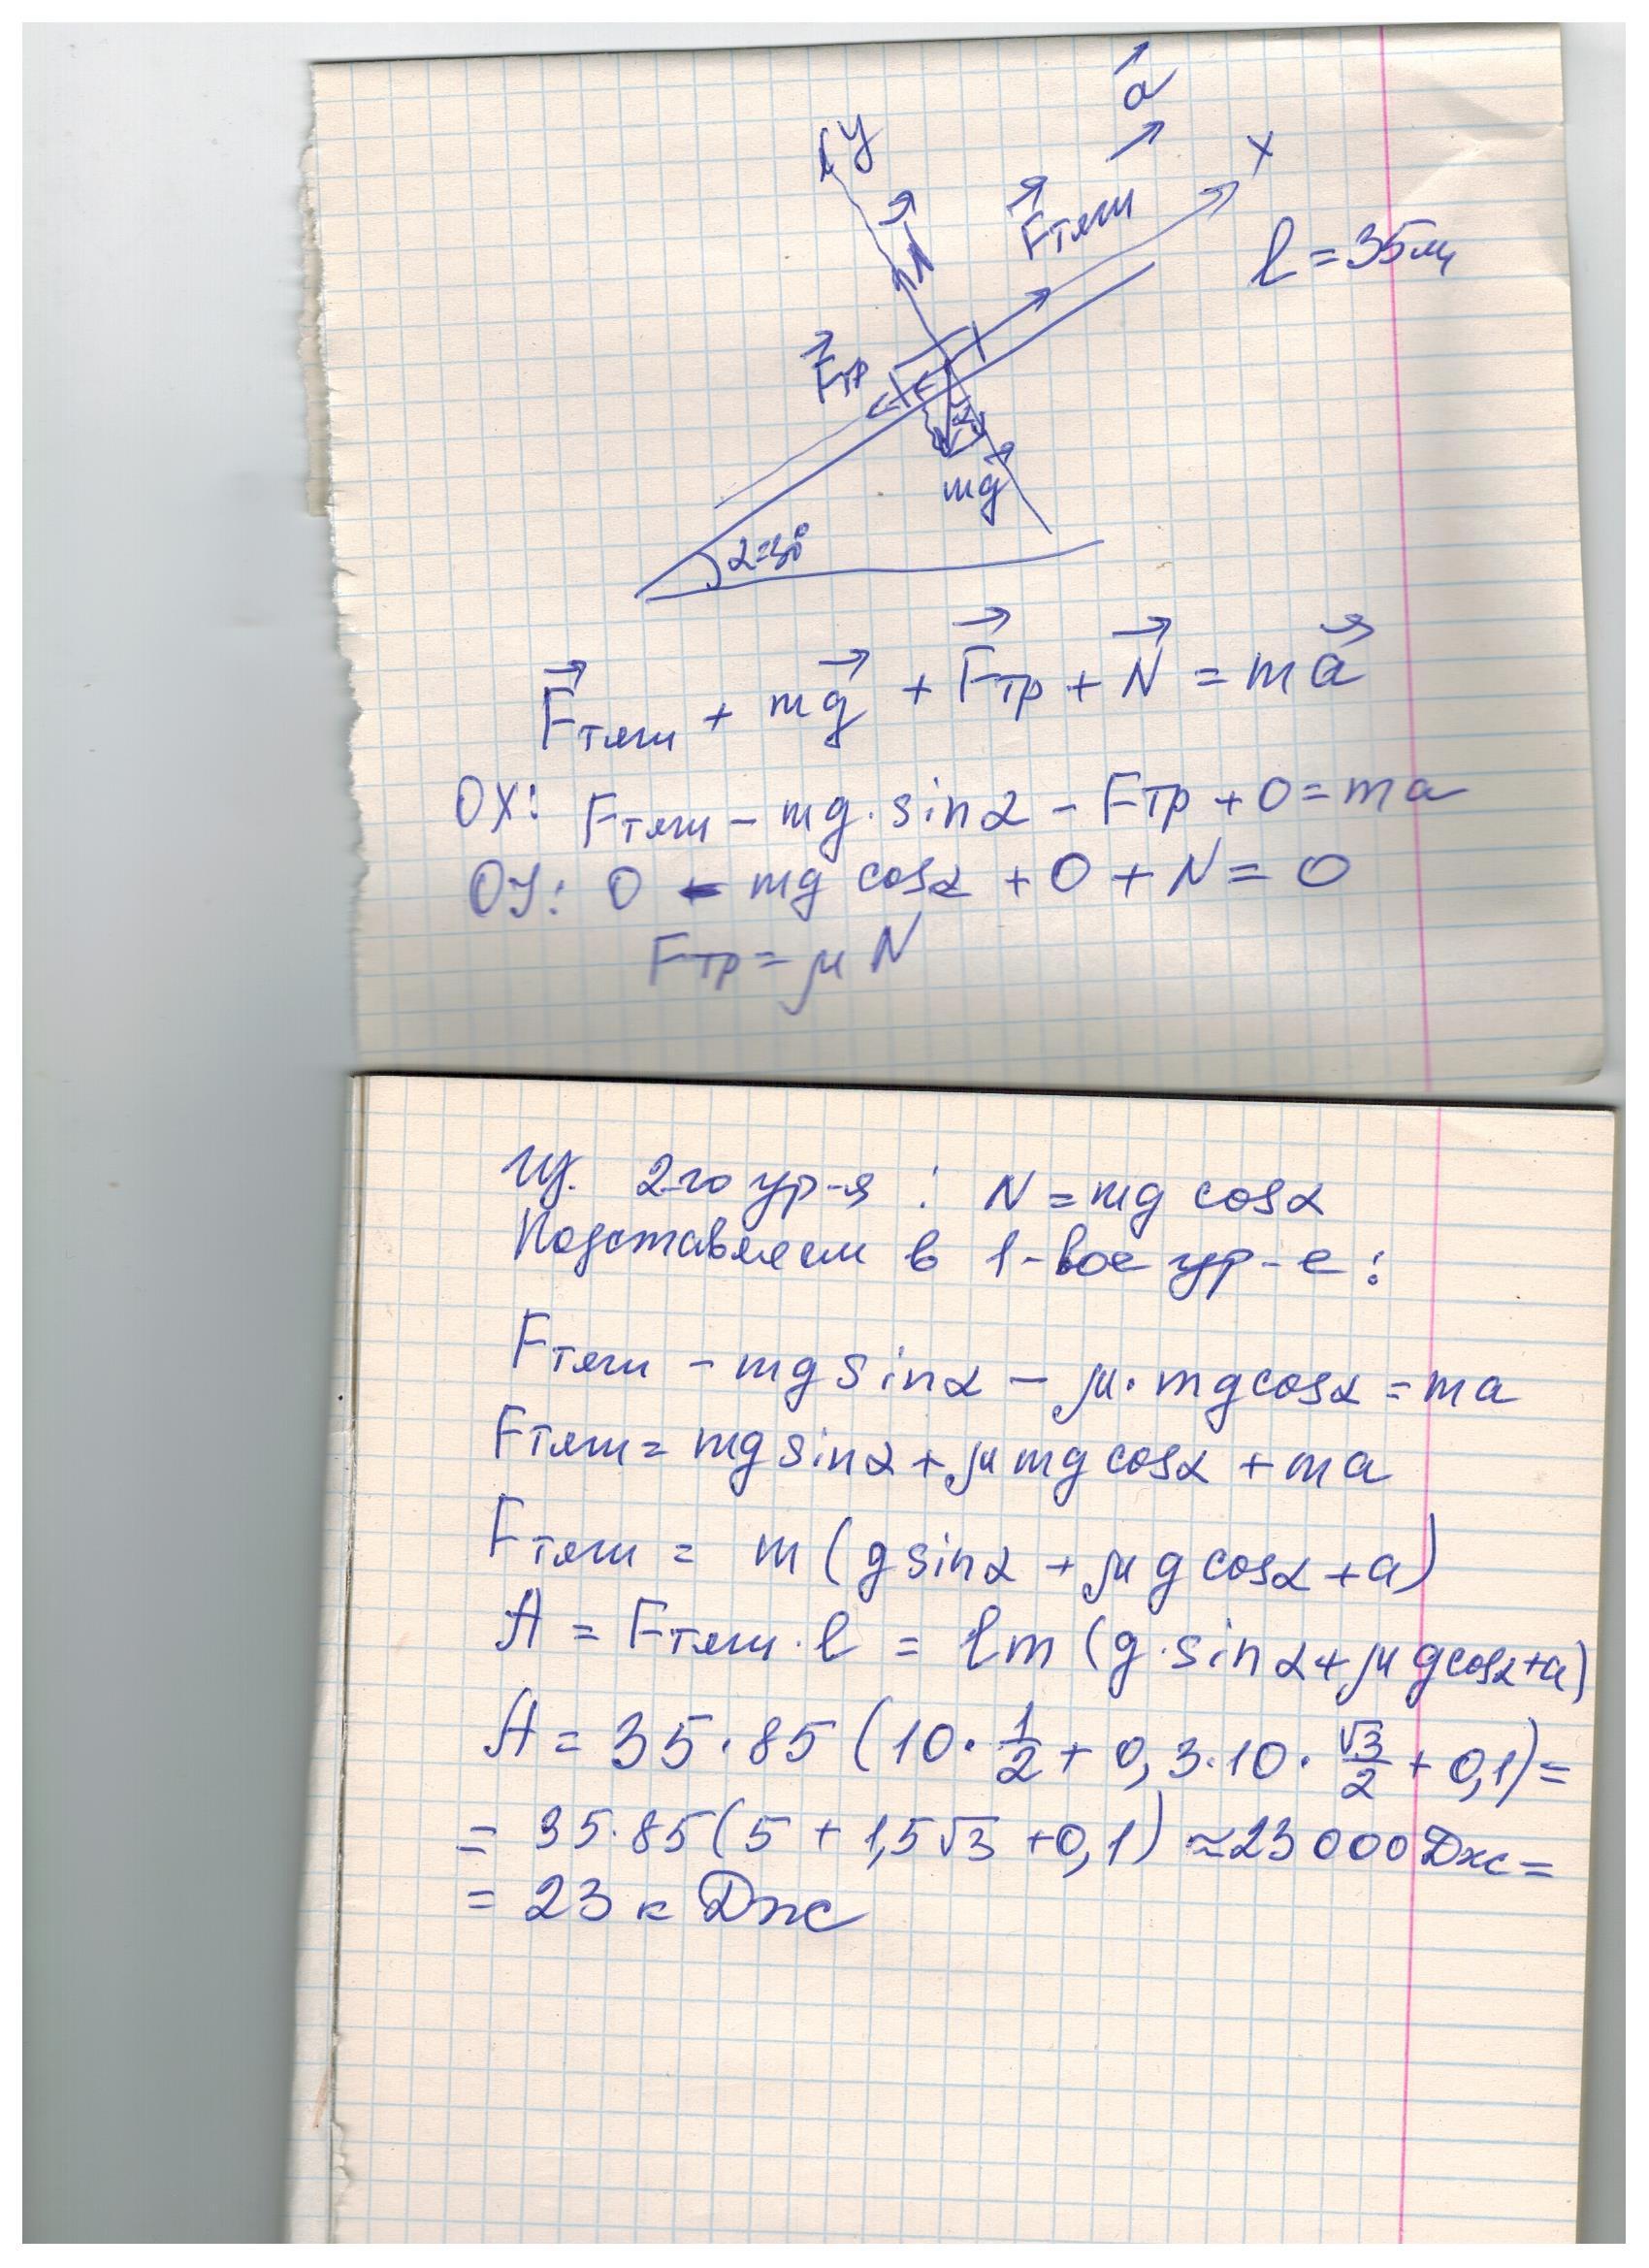 a⃗
y
x
N⃗
F⃗тяги
l = 35м
F⃗тр
α
mg⃗
α=30°
F⃗тяги + mg⃗ + F⃗тр + N⃗ = ma⃗
OX: Fтяги − mg·sinα − Fтр + 0 = ma
OY: 0 − mg cosα + 0 + N = 0
Fтр = μN
Из 2-го ур-я : N = mg cosα
Подставляем в 1-вое ур-е :
Fтяги − mg sinα − μ·mg cosα = ma
Fтяги = mg sinα + μ mg cosα + ma
Fтяги = m (g sinα + μ g cosα + a)
A = Fтяги·l = lm (g·sinα + μ g cosα + a)
A = 35·85 (10·1/2 + 0,3·10·√3/2 + 0,1) =
= 35·85 (5 + 1,5√3 + 0,1) ≈ 23 000 Дж =
= 23 кДж